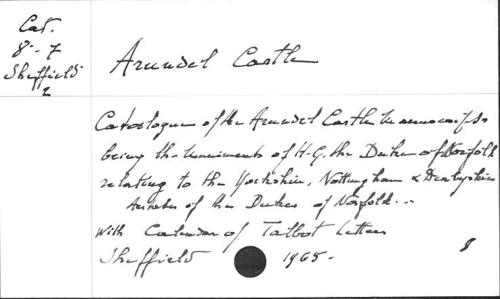 Cat.
8.-7
Sheffield
2
Arundel Castle
Catalogue of the Arundel Castle Manuscripts
being the Muniments of H.G. the Duke of Norfolk
relating to the Yorkshire, Nottingham & Derbyshire
Estates of the Dukes of Norfolk...
With Calendar of Talbot Letters
Sheffield 1965.